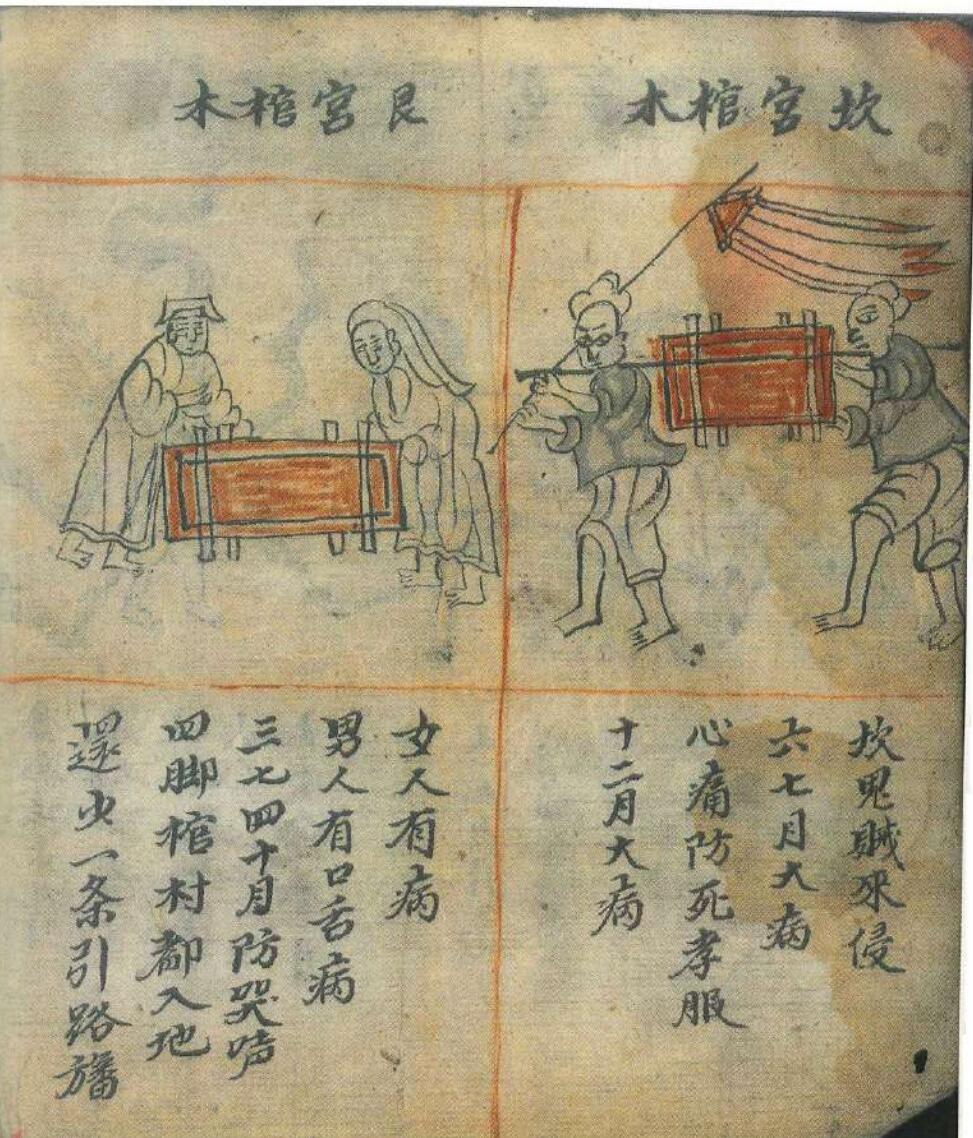 坎宫棺木
坎鬼贼来侵
六七月大病
心痛防死孝服
十二月大病
艮宫棺木
女人有病
男人有口舌病
三七四十月防哭声
四脚棺材都入地
还少一条引路旛